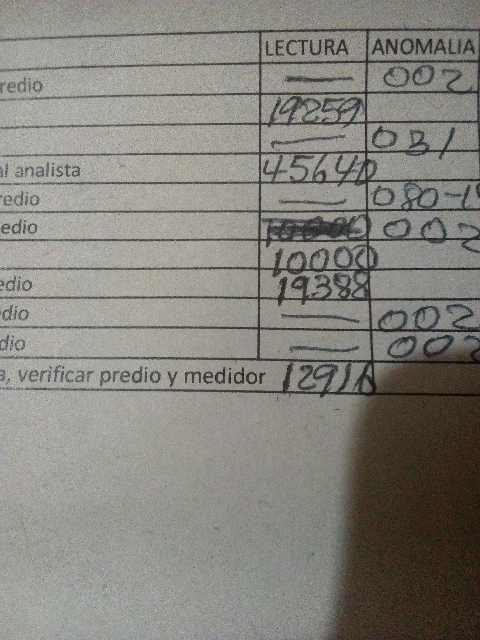 LECTURA ANOMALIA
redio — 002
19259
— 031
al analista 45640
redio — 080-1
edio 002
10000
edio 19388
dio — 002
dio — 002
a, verificar predio y medidor